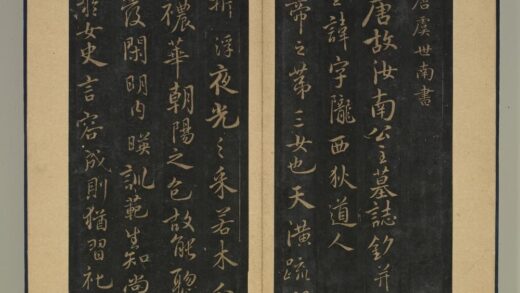 唐虞世南書
唐故汝南公主墓誌銘并
主諱字隴西狄道人
帝之第三女也天潢疏
折浮夜光之采若木
穠華朝陽之色故能聰
發閑明內暎訓範生知尚
於女史言容成則猶習礼